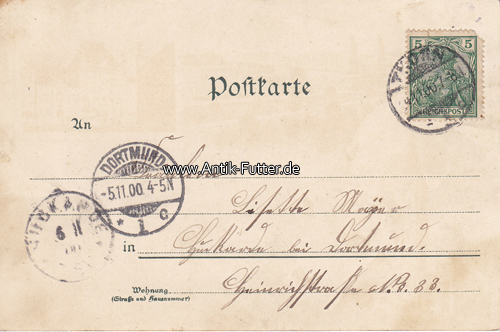 5 5
REICHSPOST
Postkarte
An
DORTMUND
-5.11.00 4-5N
* 1 c
www.Antik-Futter.de
Lisette Meyer
in Huckarde bei Dortmund.
Wohnung
(Straße und Hausnummer)
Heinrichstraße No. 33.